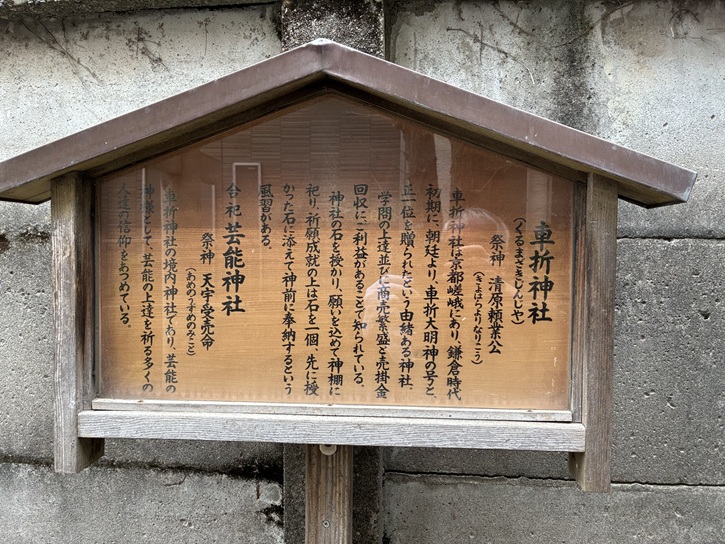 車折神社
(くるまざきじんじや)
祭神 清原頼業公
(きよはらよりなりこう)
車折神社は京都嵯峨にあり、鎌倉時代
初期に、朝廷より、車折大明神の号と、
正一位を贈られたという由緒ある神社。
学問の上達並びに商売繁盛と売掛金
回収にご利益があることで知られている。
神社の石を授かり、願いを込めて神棚に
祀り、祈願成就の上は石を一個、先に授
かった石に添えて神前に奉納するという
風習がある。
合祀 芸能神社
祭神 天宇受売命
(あめのうずめのみこと)
車折神社の境内神社であり、芸能の
神様として、芸能の上達を祈る多くの
人達の信仰をあつめている。